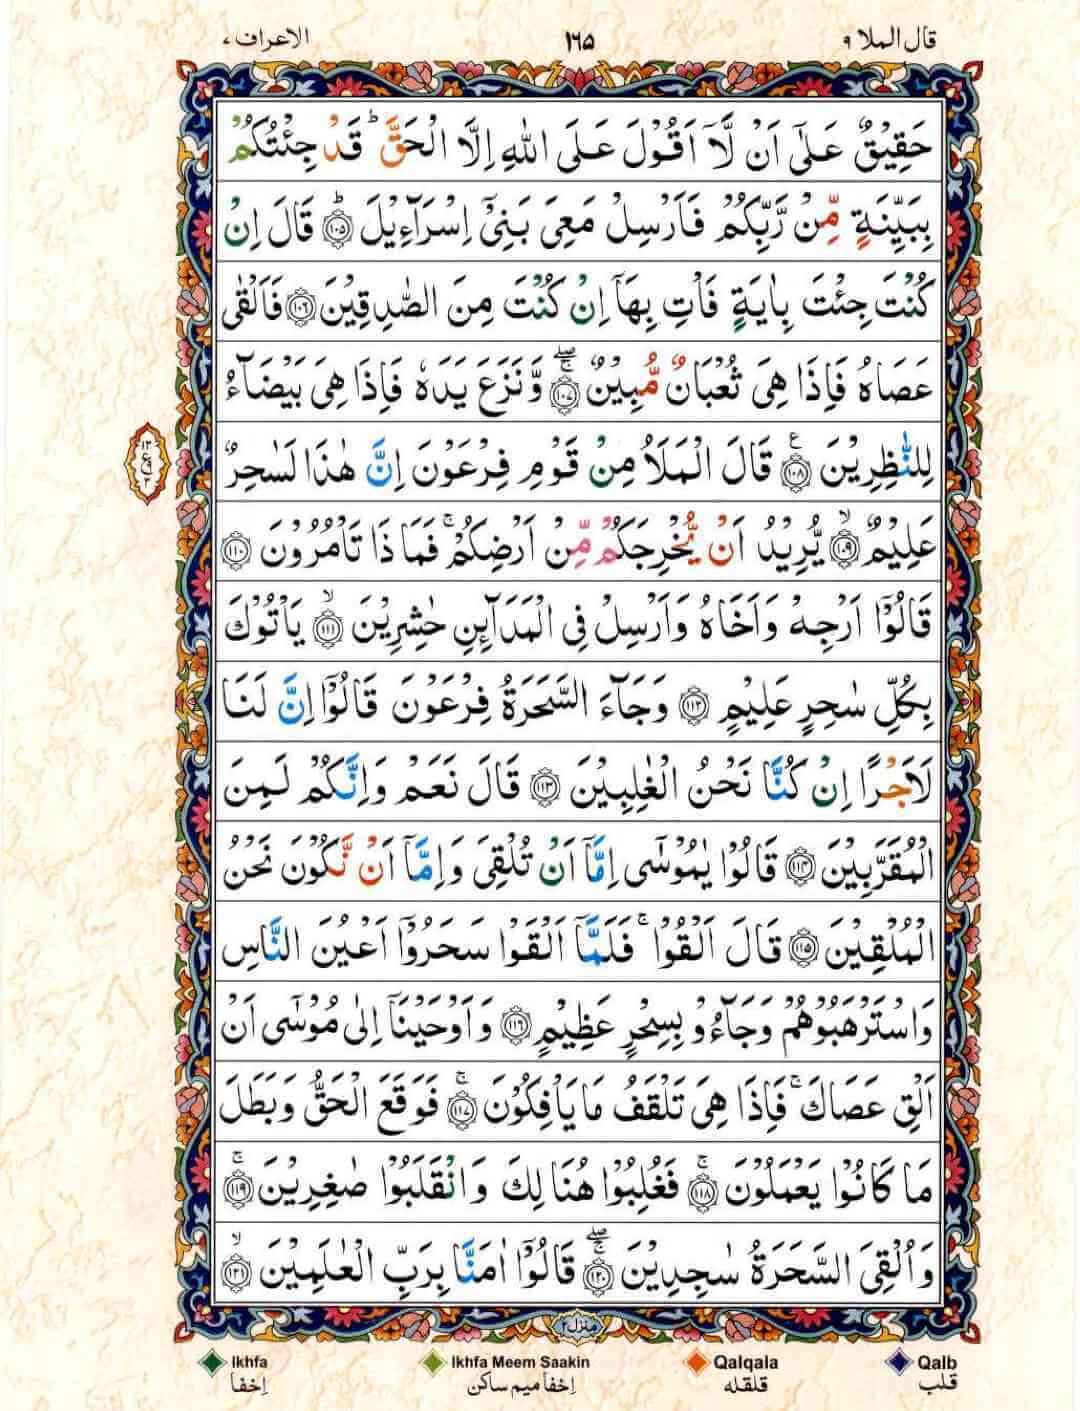 قال الملا ٩ ١٦٥ الاعراف ٧
حَقِيْقٌ عَلٰٓى اَنْ لَّاۤ اَقُوْلَ عَلَى اللّٰهِ اِلَّا الْحَقَّ ؕ قَدْ جِئْتُكُمْ
بِبَيِّنَةٍ مِّنْ رَّبِّكُمْ فَاَرْسِلْ مَعِىَ بَنِىْۤ اِسْرَآءِيْلَ ؕ ﴿١٠٥﴾ قَالَ اِنْ
كُنْتَ جِئْتَ بِاٰيَةٍ فَاْتِ بِهَاۤ اِنْ كُنْتَ مِنَ الصّٰدِقِيْنَ ﴿١٠٦﴾ فَاَلْقٰى
عَصَاهُ فَاِذَا هِىَ ثُعْبَانٌ مُّبِيْنٌ ۖۚ ﴿١٠٧﴾ وَّنَزَعَ يَدَهٗ فَاِذَا هِىَ بَيْضَآءُ
لِلنّٰظِرِيْنَ ﴿١٠٨﴾ ع قَالَ الْمَلَاُ مِنْ قَوْمِ فِرْعَوْنَ اِنَّ هٰذَا لَسٰحِرٌ
عَلِيْمٌ ۙ ﴿١٠٩﴾ يُّرِيْدُ اَنْ يُّخْرِجَكُمْ مِّنْ اَرْضِكُمْ ۚ فَمَاذَا تَاْمُرُوْنَ ﴿١١٠﴾
قَالُوْۤا اَرْجِهْ وَاَخَاهُ وَاَرْسِلْ فِى الْمَدَآئِنِ حٰشِرِيْنَ ۙ ﴿١١١﴾ يَاْتُوْكَ
بِكُلِّ سٰحِرٍ عَلِيْمٍ ﴿١١٢﴾ وَجَآءَ السَّحَرَةُ فِرْعَوْنَ قَالُوْۤا اِنَّ لَنَا
لَاَجْرًا اِنْ كُنَّا نَحْنُ الْغٰلِبِيْنَ ﴿١١٣﴾ قَالَ نَعَمْ وَاِنَّكُمْ لَمِنَ
الْمُقَرَّبِيْنَ ﴿١١٤﴾ قَالُوْا يٰمُوْسٰٓى اِمَّاۤ اَنْ تُلْقِىَ وَاِمَّاۤ اَنْ نَّكُوْنَ نَحْنُ
الْمُلْقِيْنَ ﴿١١٥﴾ قَالَ اَلْقُوْا ۚ فَلَمَّاۤ اَلْقَوْا سَحَرُوْۤا اَعْيُنَ النَّاسِ
وَاسْتَرْهَبُوْهُمْ وَجَآءُوْ بِسِحْرٍ عَظِيْمٍ ﴿١١٦﴾ وَاَوْحَيْنَاۤ اِلٰى مُوْسٰٓى اَنْ
اَلْقِ عَصَاكَ ۚ فَاِذَا هِىَ تَلْقَفُ مَا يَاْفِكُوْنَ ۚ ﴿١١٧﴾ فَوَقَعَ الْحَقُّ وَبَطَلَ
مَا كَانُوْا يَعْمَلُوْنَ ۚ ﴿١١٨﴾ فَغُلِبُوْا هُنَالِكَ وَانْقَلَبُوْا صٰغِرِيْنَ ۚ ﴿١١٩﴾
وَاُلْقِىَ السَّحَرَةُ سٰجِدِيْنَ ۖۚ ﴿١٢٠﴾ قَالُوْۤا اٰمَنَّا بِرَبِّ الْعٰلَمِيْنَ ۙ ﴿١٢١﴾
منزل ٢
Ikhfa Ikhfa Meem Saakin Qalqala Qalb
اِخفا اِخفا میم ساکن قلقله قلب